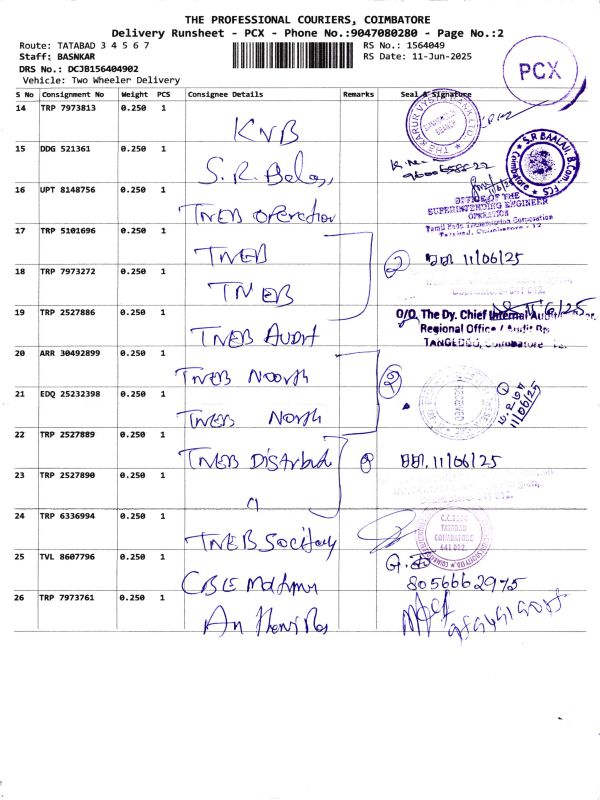 THE PROFESSIONAL COURIERS, COIMBATORE
Delivery Runsheet - PCX - Phone No.:9047080280 - Page No.:2
Route: TATABAD 3 4 5 6 7
RS No.: 1564049
Staff: BASNKAR
RS Date: 11-Jun-2025
DRS No.: DCJB156404902
Vehicle: Two Wheeler Delivery
PCX
S No Consignment No Weight PCS Consignee Details Remarks Seal & Signature
14 TRP 7973813 0.250 1
KVB
THE KARUR VYSYA BANK LTD.
15 DDG 521361 0.250 1
S.R.
S.R BAALAJI. B.Com
FCS
Coimbatore
16 UPT 8148756 0.250 1
TNEB Operation
OFFICE OF THE
SUPERINTENDING ENGINEER
OPERATION
Tamil Nadu Transmission Corporation
Tatabad, Coimbatore - 12
17 TRP 5101696 0.250 1
TNEB
2
11/06/25
18 TRP 7973272 0.250 1
TNEB
19 TRP 2527886 0.250 1
TNEB AUDIT
O/O. The Dy. Chief Internal Audit
Regional Office / Audit
TANGEDCO, Coimbatore
20 ARR 30492899 0.250 1
TNEB North
2
21 EDQ 25232398 0.250 1
TNEB North
11/06/25
22 TRP 2527889 0.250 1
TNEB
11/06/25
23 TRP 2527890 0.250 1
24 TRP 6336994 0.250 1
TNEB
TATABAD
COIMBATORE
641 012.
25 TVL 8607796 0.250 1
CBE
8056662975
26 TRP 7973761 0.250 1